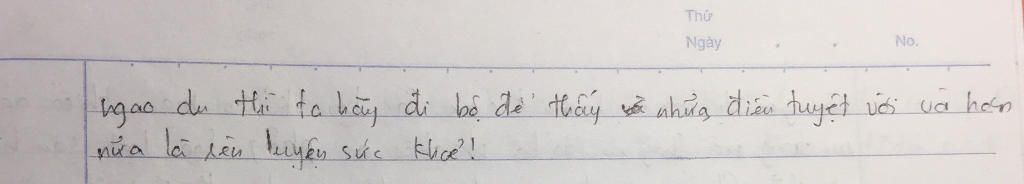 Thứ
Ngày . . No.
ngao du thì ta hãy đi bộ để thấy những điều tuyệt vời và hơn
nữa là rèn luyện sức khoẻ!